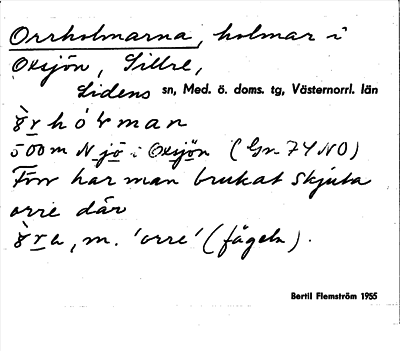 Orrholmarna, holmar i
Oxsjön, Sillre,
Lidens sn, Med. ö. doms. tg, Västernorrl. län
500 m N jö i Oxsjön (Gr. 74 NO)
Förr har man brukat skjuta
orre där
m. 'orre' (fågeln).
Bertil Flemström 1955